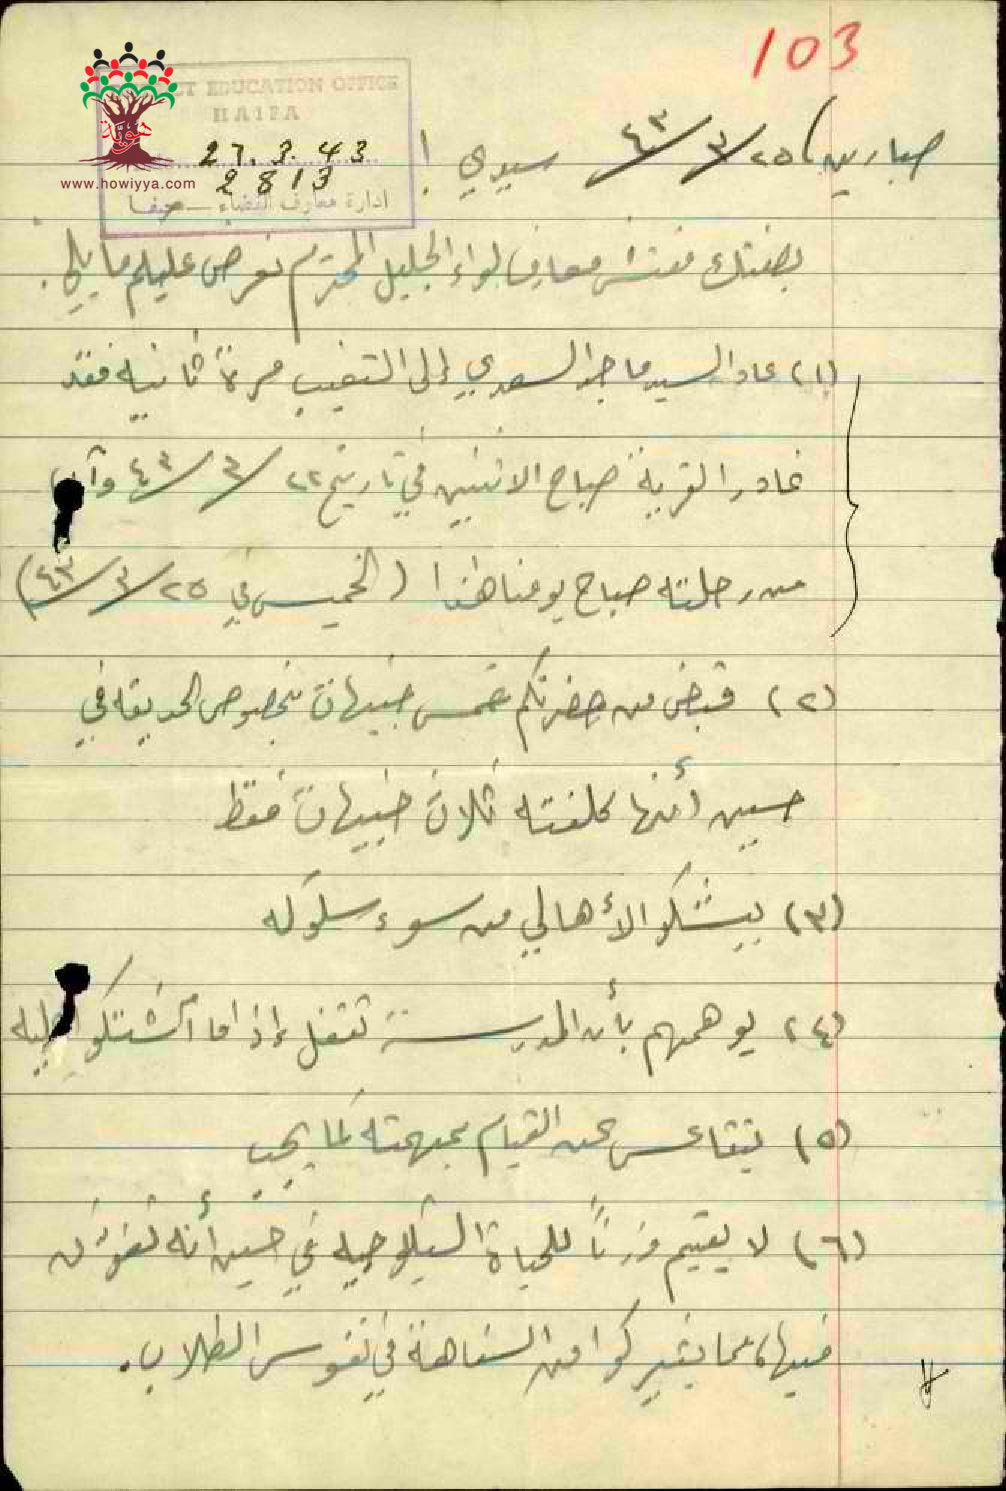 103
DISTRICT EDUCATION OFFICE
HAIFA
27.3.43
2813
ادارة معارف القضاء — حيفا
هوية
www.howiyya.com
صبارين، ٢٥/٣/٤٣ سيدي !
بصفتك مفتش معارف لواء الجليل المحترم نعرض عليكم ما يلي:
(١) عاد السيد ماجد السعدي إلى التغيب مرة ثانية فقد
غادر القرية صباح الاثنين في تاريخ ٢٢/٣/٤٣ وآب
من رحلته صباح يومنا هذا (الخميس في ٢٥/٣/٤٣)
(٢) قبض من حضرتكم خمس جنيهات بخصوص الحديقة في
حين أنها كلفته ثلاث جنيهات فقط
(٣) يشكو الأهالي من سوء سلوكه
(٤) يوهمهم بأن المدرسة تقفل إذا ما اشتكوا عليه
(٥) يتقاعس عن القيام بمهمته كما يجب
(٦) لا يقيم وزناً للحياة في حين أنه
فيها، مما يثير كوامن السفاهة في نفوس الطلاب.